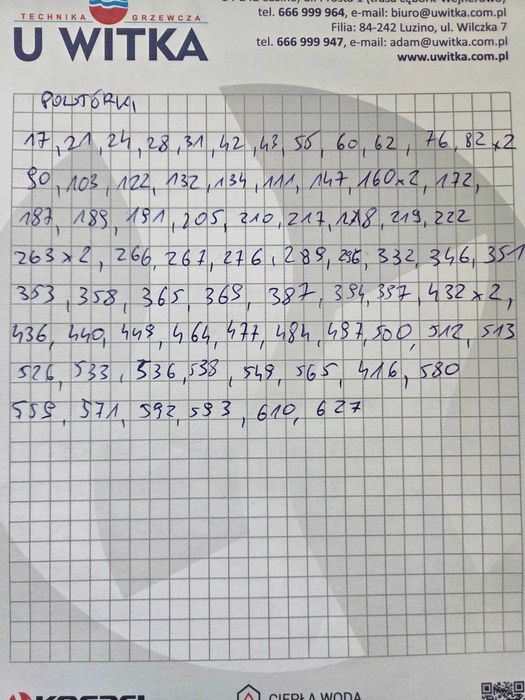 TECHNIKA GRZEWCZA
U WITKA
tel. 666 999 964, e-mail: biuro@uwitka.com.pl
Filia: 84-242 Luzino, ul. Wilczka 7
tel. 666 999 947, e-mail: adam@uwitka.com.pl
www.uwitka.com.pl
POWTÓRKI
17, 21, 24, 28, 31, 42, 43, 55, 60, 62, 76, 82 x 2
90, 103, 122, 132, 134, 111, 147, 160 x 2, 172,
187, 189, 191, 205, 210, 217, 218, 219, 222
263 x 2, 266, 267, 276, 289, 296, 332, 346, 351
353, 358, 365, 369, 387, 394, 397, 432 x 2,
436, 440, 449, 464, 477, 484, 497, 500, 512, 513
526, 533, 536, 538, 549, 565, 416, 580
559, 571, 592, 593, 610, 627
CIEPŁA WODA